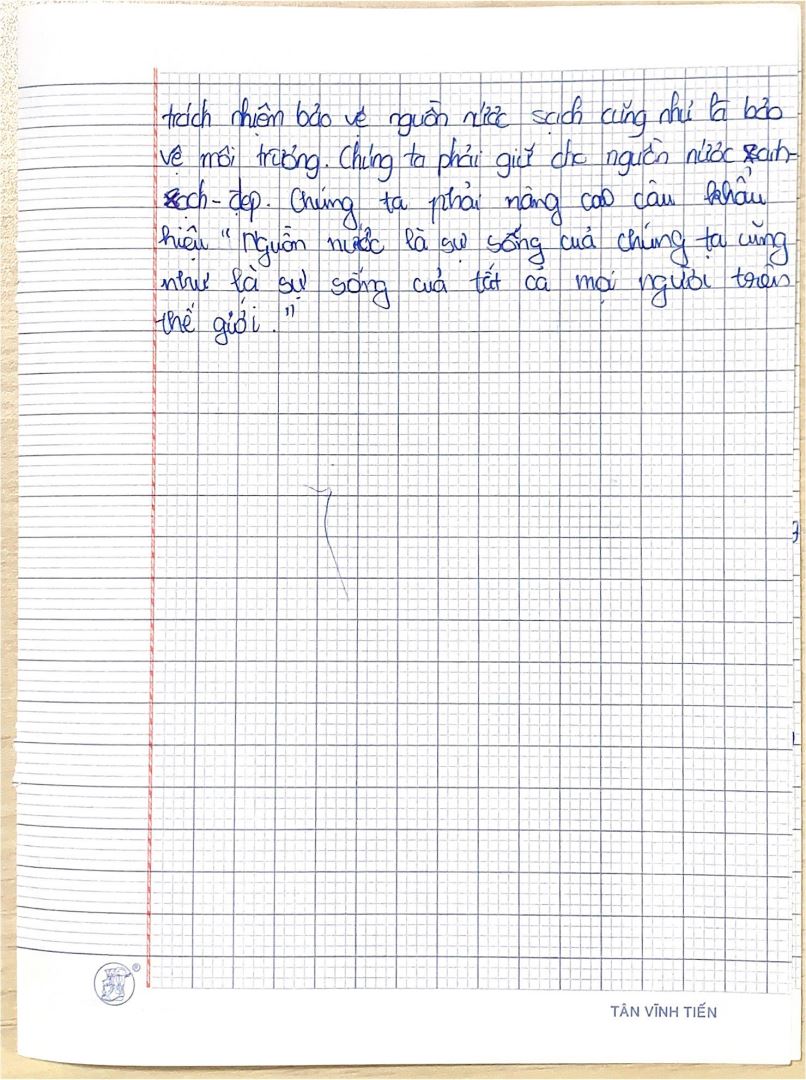 trách nhiệm bảo vệ nguồn nước sạch cũng như là bảo
vệ môi trường. Chúng ta phải giữ cho nguồn nước xanh-
sạch-đẹp. Chúng ta phải nâng cao câu khẩu
hiệu "Nguồn nước là sự sống cuả chúng ta cũng
như là sự sống cuả tất cả mọi người trên
thế giới."
TÂN VĨNH TIẾN